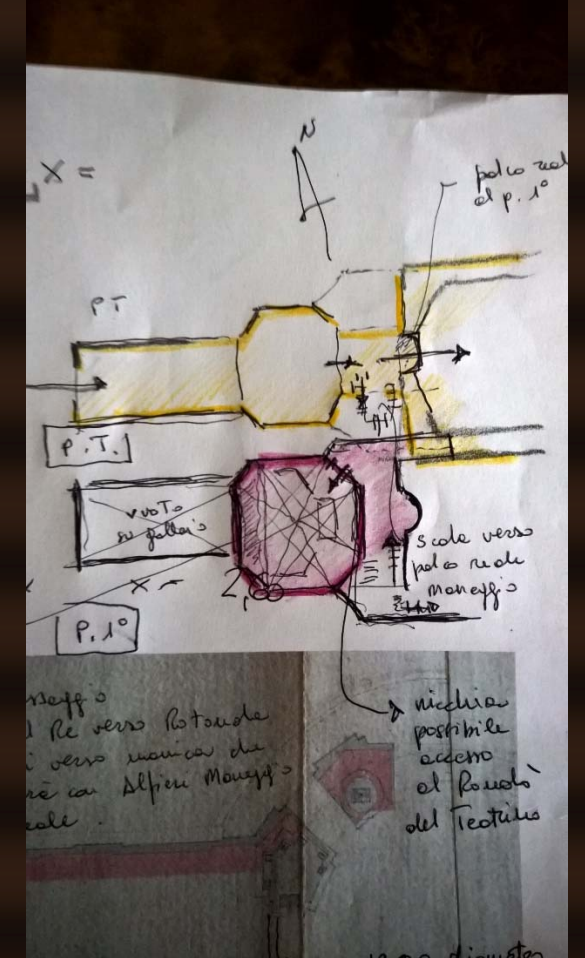 X =
N
palco real
al p. 1°
PT
P.T.
vuoto
su galleria
scala verso
palco reale
maneggio
X -
2
P. 1°
nicchia
possibile
accesso
al Rondò
del Teatrino
Re verso Rotonda
verso manica che
con Alfieri Maneggio
diameter